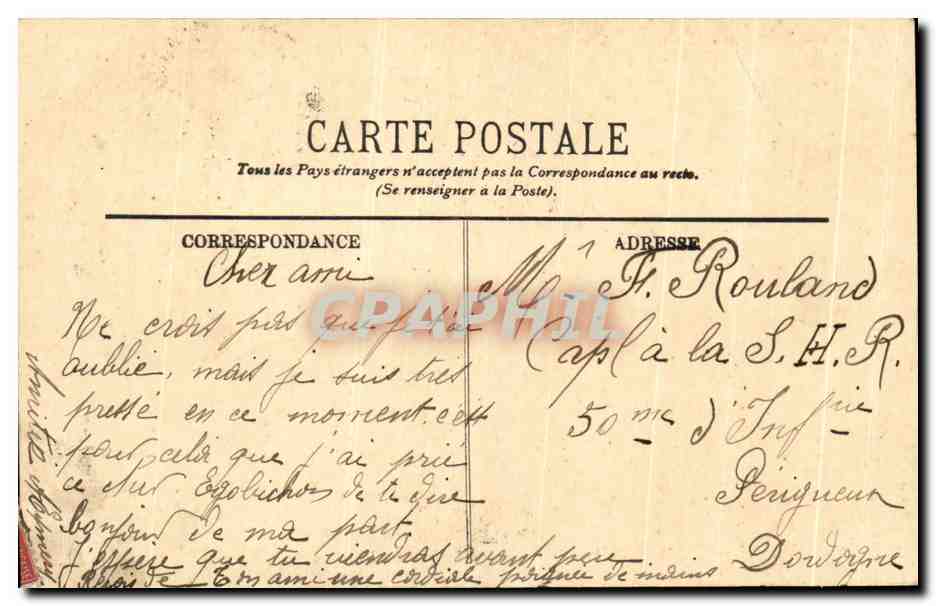 CARTE POSTALE
Tous les Pays étrangers n'acceptent pas la Correspondance au recto.
(Se renseigner à la Poste).
CORRESPONDANCE
Cher ami
Ne crois pas que je t'ai
oublié, mais je suis très
pressé en ce moment c'est
pour cela que j'ai prié
ce de te dire
bonjour de ma part,
J'espère que tu viendras avant peu
Reçois de ton ami une cordiale poignée de mains
Amitié
ADRESSE
Mr F. Rouland
Capl à la S. H. R.
50me d'Infie
Périgueux
Dordogne
CPAPHIL